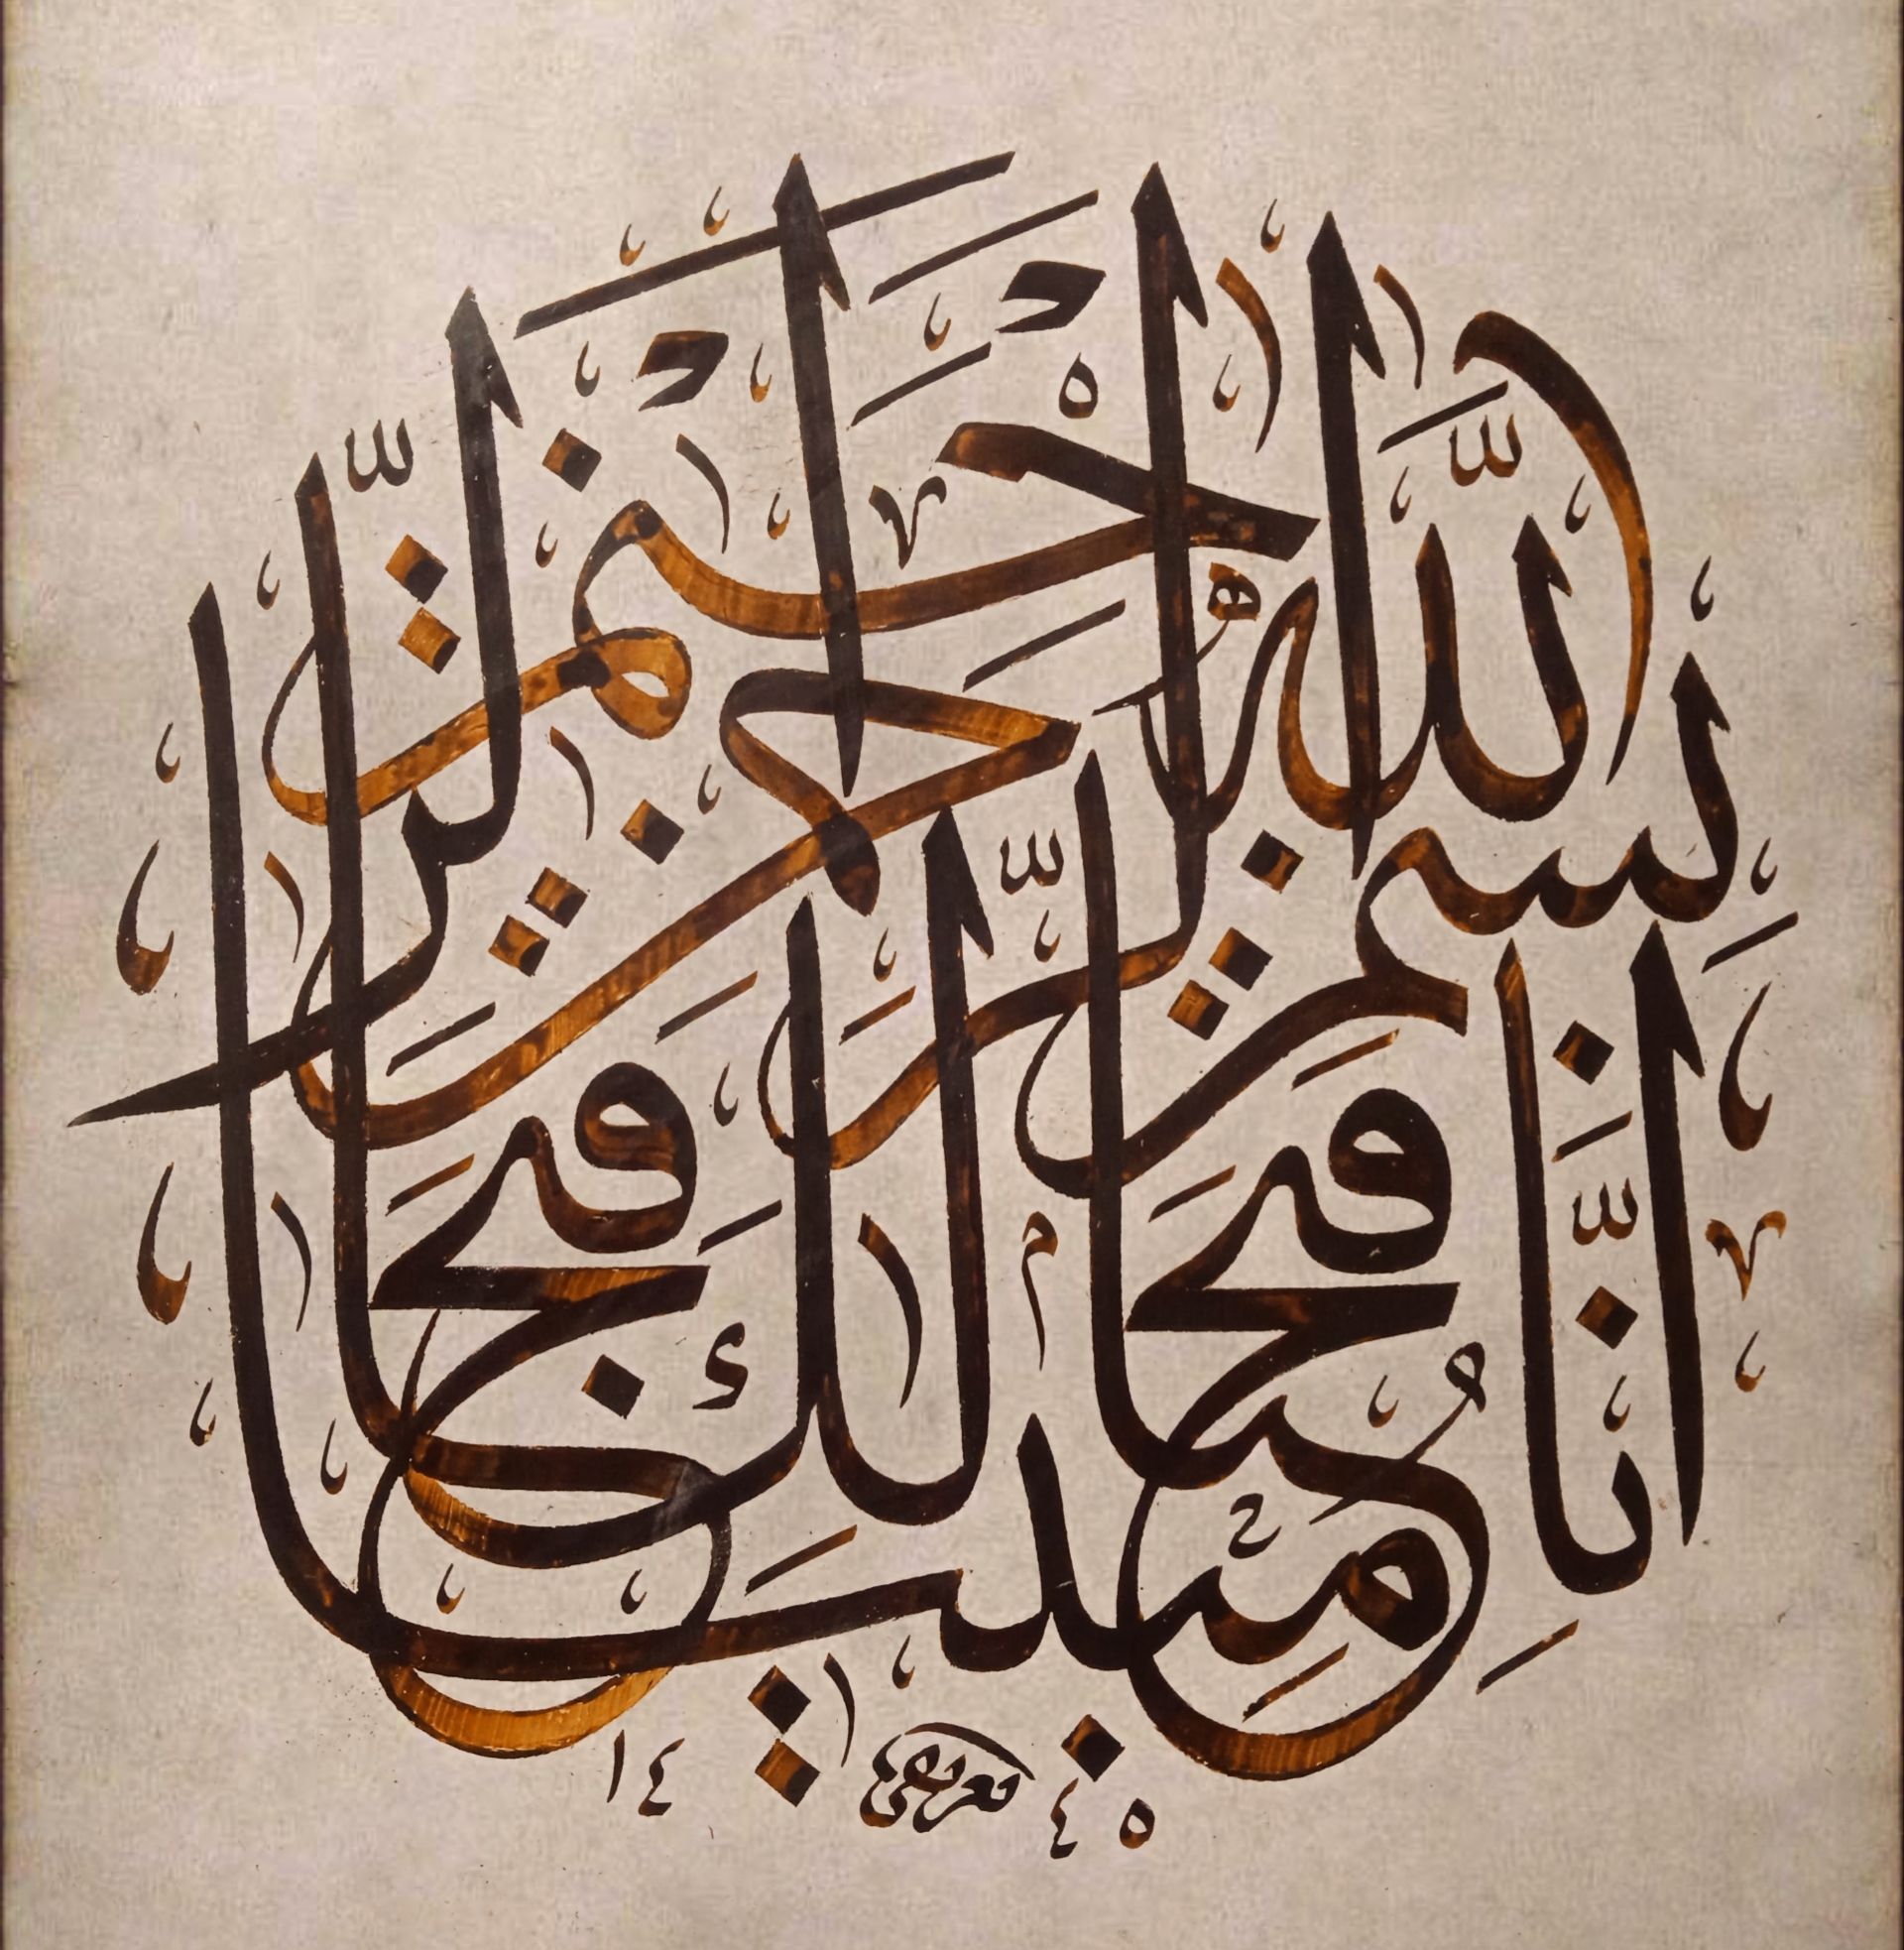 بِسْمِ اللَّهِ الرَّحْمٰنِ الرَّحِيمِ
إِنَّا فَتَحْنَا لَكَ فَتْحًا مُبِينًا
١٤ ٤٥